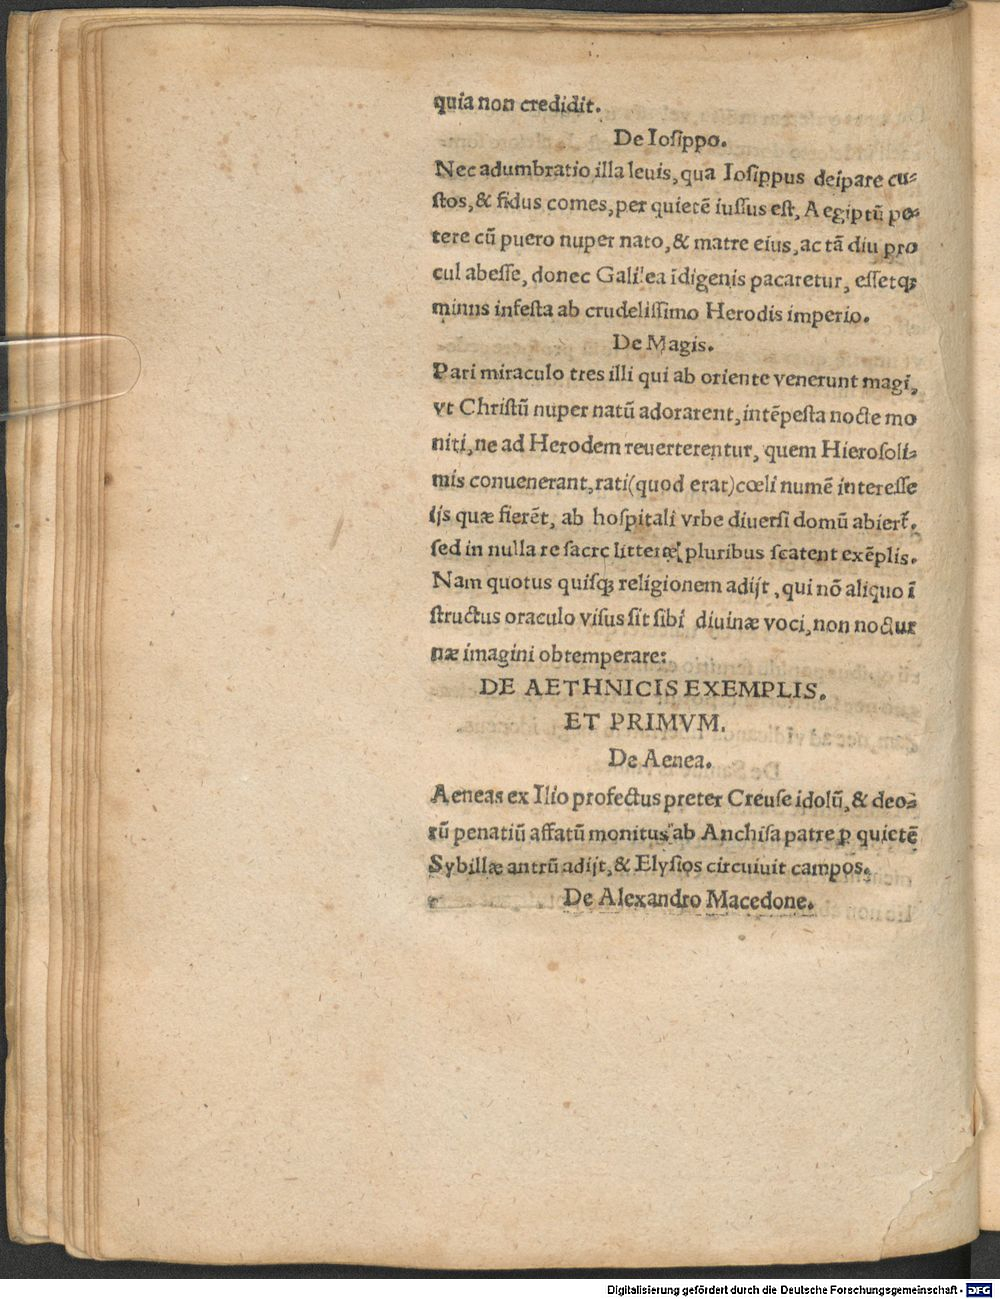 quia non credidit.
De Ioſippo.
Nec adumbratio illa leuis, qua Ioſippus deipare cu⸗
ſtos, & fidus comes, per quietē iuſſus eſt, Aegiptū pe⸗
tere cū puero nuper nato, & matre eius, ac tā diu pro
cul abeſſe, donec Galilea īdigenis pacaretur, eſſetqꝫ
minus infeſta ab crudeliſſimo Herodis imperio.
De Magis.
Pari miraculo tres illi qui ab oriente venerunt magi,
vt Chriſtū nuper natū adorarent, intēpeſta nocte mo
niti, ne ad Herodem reuerterentur, quem Hieroſoli⸗
mis conuenerant, rati (quod erat) cœli numē intereſſe
ijs quæ fierēt, ab hoſpitali vrbe diuerſi domū abiert̄.
ſed in nulla re ſacrę litteræ, pluribus ſcatent exēplis.
Nam quotus quiſqꝫ religionem adijt, qui nō aliquo ī
ſtructus oraculo viſus ſit ſibi diuinæ voci, non noctur
næ imagini obtemperare:
DE AETHNICIS EXEMPLIS.
ET PRIMVM.
De Aenea.
Aeneas ex Ilio profectus preter Creuſe idolū, & deo⸗
rū penatiū affatū monitus ab Anchiſa patre ꝑ quietē
Sybillæ antrū adijt, & Elyſios circuiuit campos.
De Alexandro Macedone.
Digitalisierung gefördert durch die Deutsche Forschungsgemeinschaft - DFG